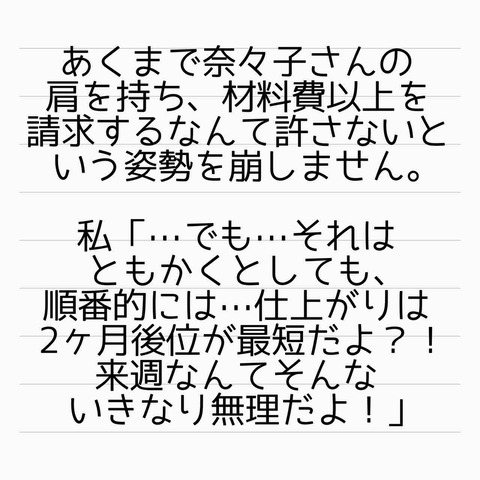 あくまで奈々子さんの
肩を持ち、材料費以上を
請求するなんて許さないと
いう姿勢を崩しません。
私「…でも…それは
ともかくとしても、
順番的には…仕上がりは
2ヶ月後位が最短だよ？！
来週なんてそんな
いきなり無理だよ！」